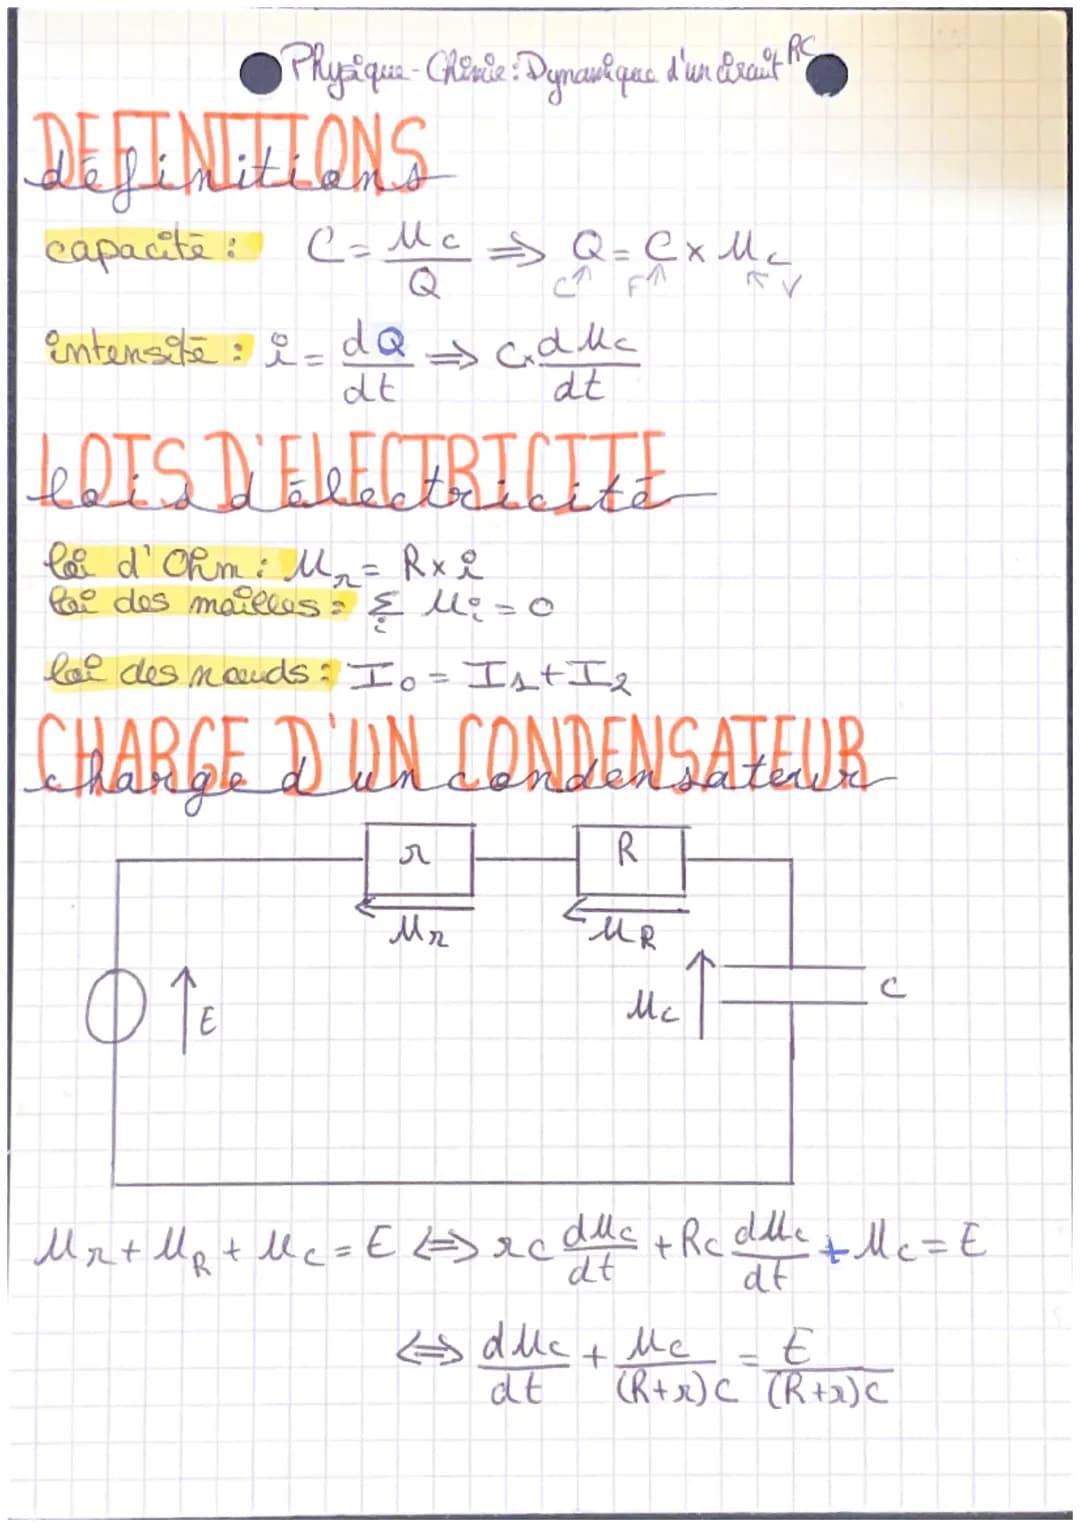 Physique-Chimie: Dynamique d'un circuit RC
DEFINITIONS
définitions
capacité : C = Uc/Q ⇒ Q = C x Uc
C↑ F↑ ↖ V
intensité : i = dQ/dt ⇒ C x dUc/dt
LOIS D'ELECTRICITE
lois d'électricité
loi d'Ohm : Ur = R x i
loi des mailles : Σi Ui = 0
loi des nœuds : I0 = I1 + I2
CHARGE D'UN CONDENSATEUR
charge d'un condensateur
r R
Ur UR
E Uc C
Ur + UR + Uc = E ⇔ rC dUc/dt + RC dUc/dt + Uc = E
⇔ dUc/dt + Uc/(R+r)C = E/(R+r)C